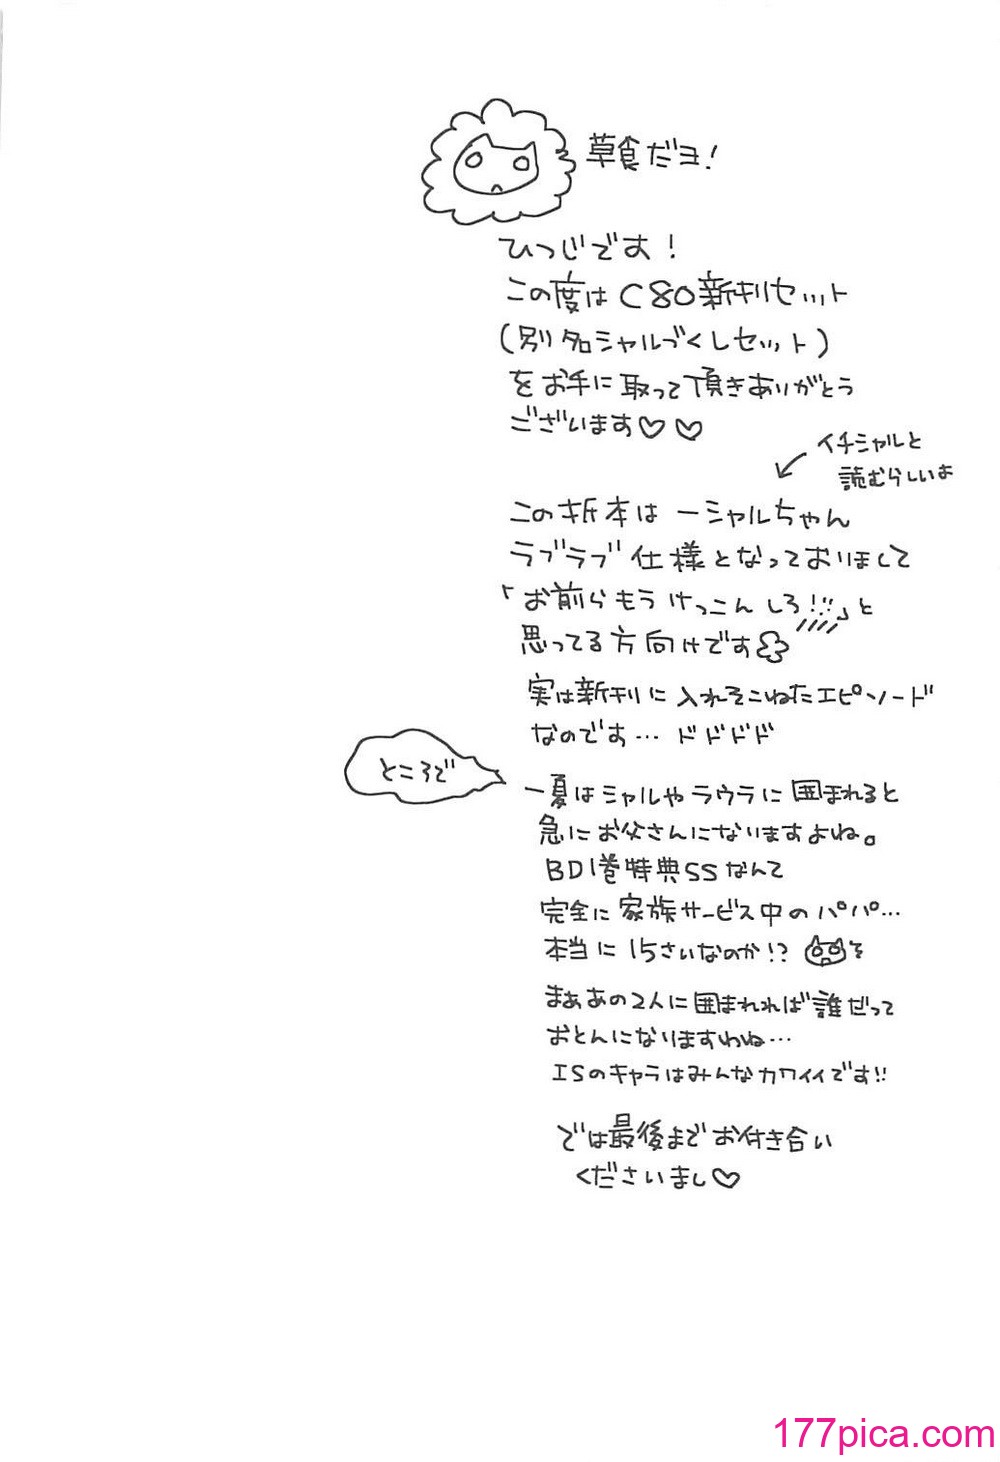 草食だヨ!
ひつじです!
この度はC80新刊セット
(別名シャルづくしセット)
をお手に取って頂きありがとう
ございます♡♡
イチシャルと
読むらしいよ
この折本は一シャルちゃん
ラブラブ仕様となっておりまして
「お前らもうけっこんしろ!!」と
思ってる方向けです
実は新刊に入れそこねたエピソード
なのです…ドドドド
ところで
一夏はシャルやラウラに囲まれると
急にお父さんになりますよね。
BD1巻特典SSなんて
完全に家族サービス中のパパ…
本当に15さいなのか!?
まああの2人に囲まれれば誰だって
おとんになりますわね…
ISのキャラはみんなカワイイです!!
では最後までお付き合い
くださいまし♡
177pica.com